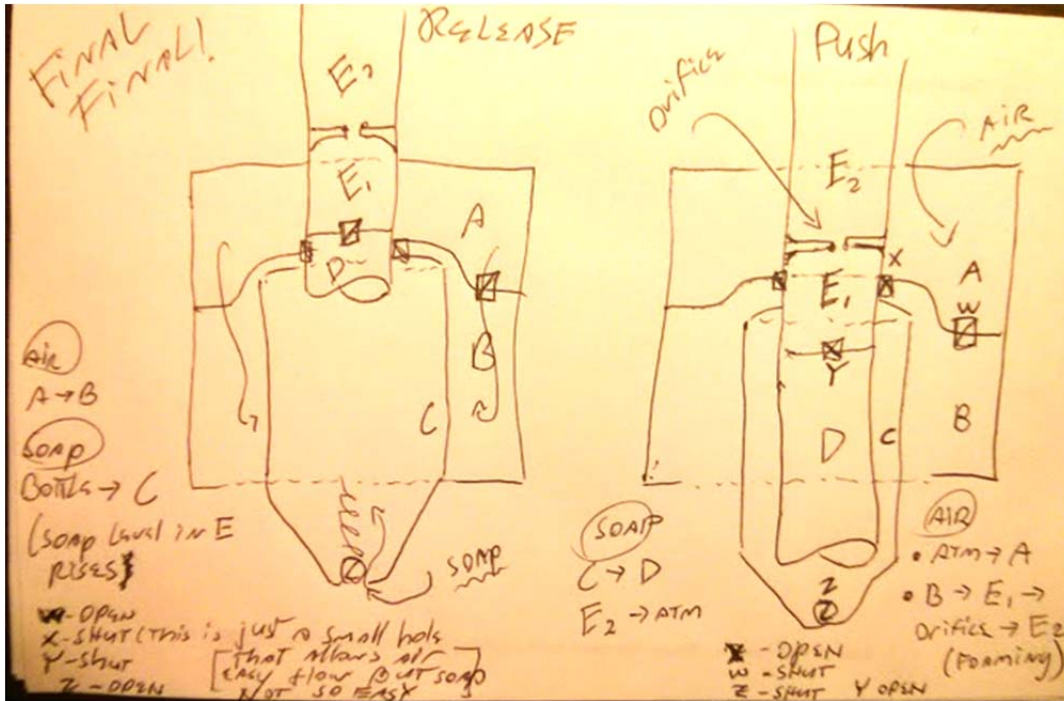 FINAL
FINAL!
RELEASE
E2
E1
A
D
B
C
AIR
A → B
SOAP
BOTTLE → C
(SOAP LEVEL IN E
RISES)
W - OPEN
X - SHUT (THIS is just a small hole
Y - SHUT [THAT allows AIR
EASY flow BUT SOAP
Z - OPEN NOT SO EASY]
SOAP
Push
Orifice
AIR
E2
X
A
E1
W
Y
B
D
C
Z
SOAP
C → D
E2 → ATM
AIR
• ATM → A
• B → E1 →
Orifice → E2
(FOAMING)
X - OPEN
W - SHUT
Z - SHUT Y OPEN